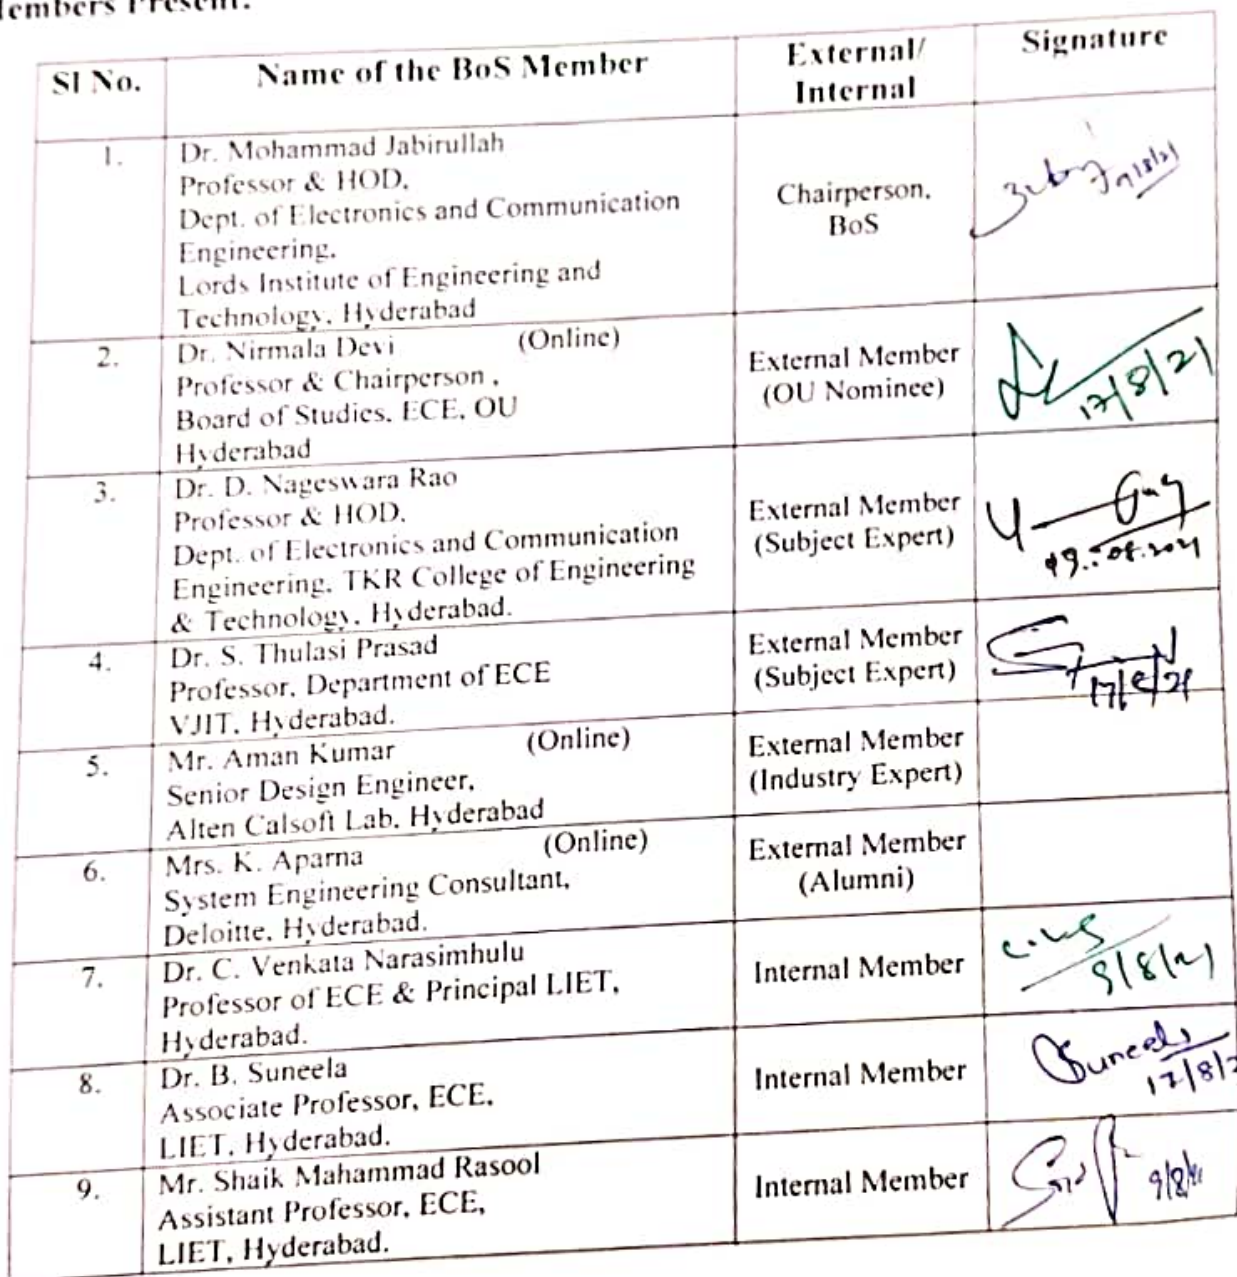 Members Present:
Sl No.
Name of the BoS Member
External/
Internal
Signature
1.
Dr. Mohammad Jabirullah
Professor & HOD,
Dept. of Electronics and Communication
Engineering,
Lords Institute of Engineering and
Technology, Hyderabad
Chairperson,
BoS
2.
Dr. Nirmala Devi (Online)
Professor & Chairperson ,
Board of Studies, ECE, OU
Hyderabad
External Member
(OU Nominee)
17/8/21
3.
Dr. D. Nageswara Rao
Professor & HOD,
Dept. of Electronics and Communication
Engineering, TKR College of Engineering
& Technology, Hyderabad.
External Member
(Subject Expert)
4.
Dr. S. Thulasi Prasad
Professor, Department of ECE
VJIT, Hyderabad.
External Member
(Subject Expert)
17/8/21
5.
Mr. Aman Kumar (Online)
Senior Design Engineer,
Alten Calsoft Lab, Hyderabad
External Member
(Industry Expert)
6.
Mrs. K. Aparna (Online)
System Engineering Consultant,
Deloitte, Hyderabad.
External Member
(Alumni)
7.
Dr. C. Venkata Narasimhulu
Professor of ECE & Principal LIET,
Hyderabad.
Internal Member
8.
Dr. B. Suneela
Associate Professor, ECE,
LIET, Hyderabad.
Internal Member
Suneela
17/8/2
9.
Mr. Shaik Mahammad Rasool
Assistant Professor, ECE,
LIET, Hyderabad.
Internal Member